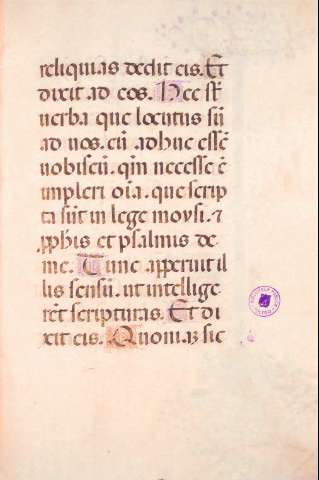 reliquias dedit eis. Et
dixit ad eos. Hec st̄
uerba que locutus sū
ad uos. cū adhuc essē
uobiscū. qm̄ necesse ē
impleri oīa. que scrip
ta sūt in lege moysi. ⁊
ꝓphis et psalmis de
me. Tunc apperuit il
lis sensū. ut intellige
rēt scripturas. Et di
xit eis. Quoniaꝫ sic